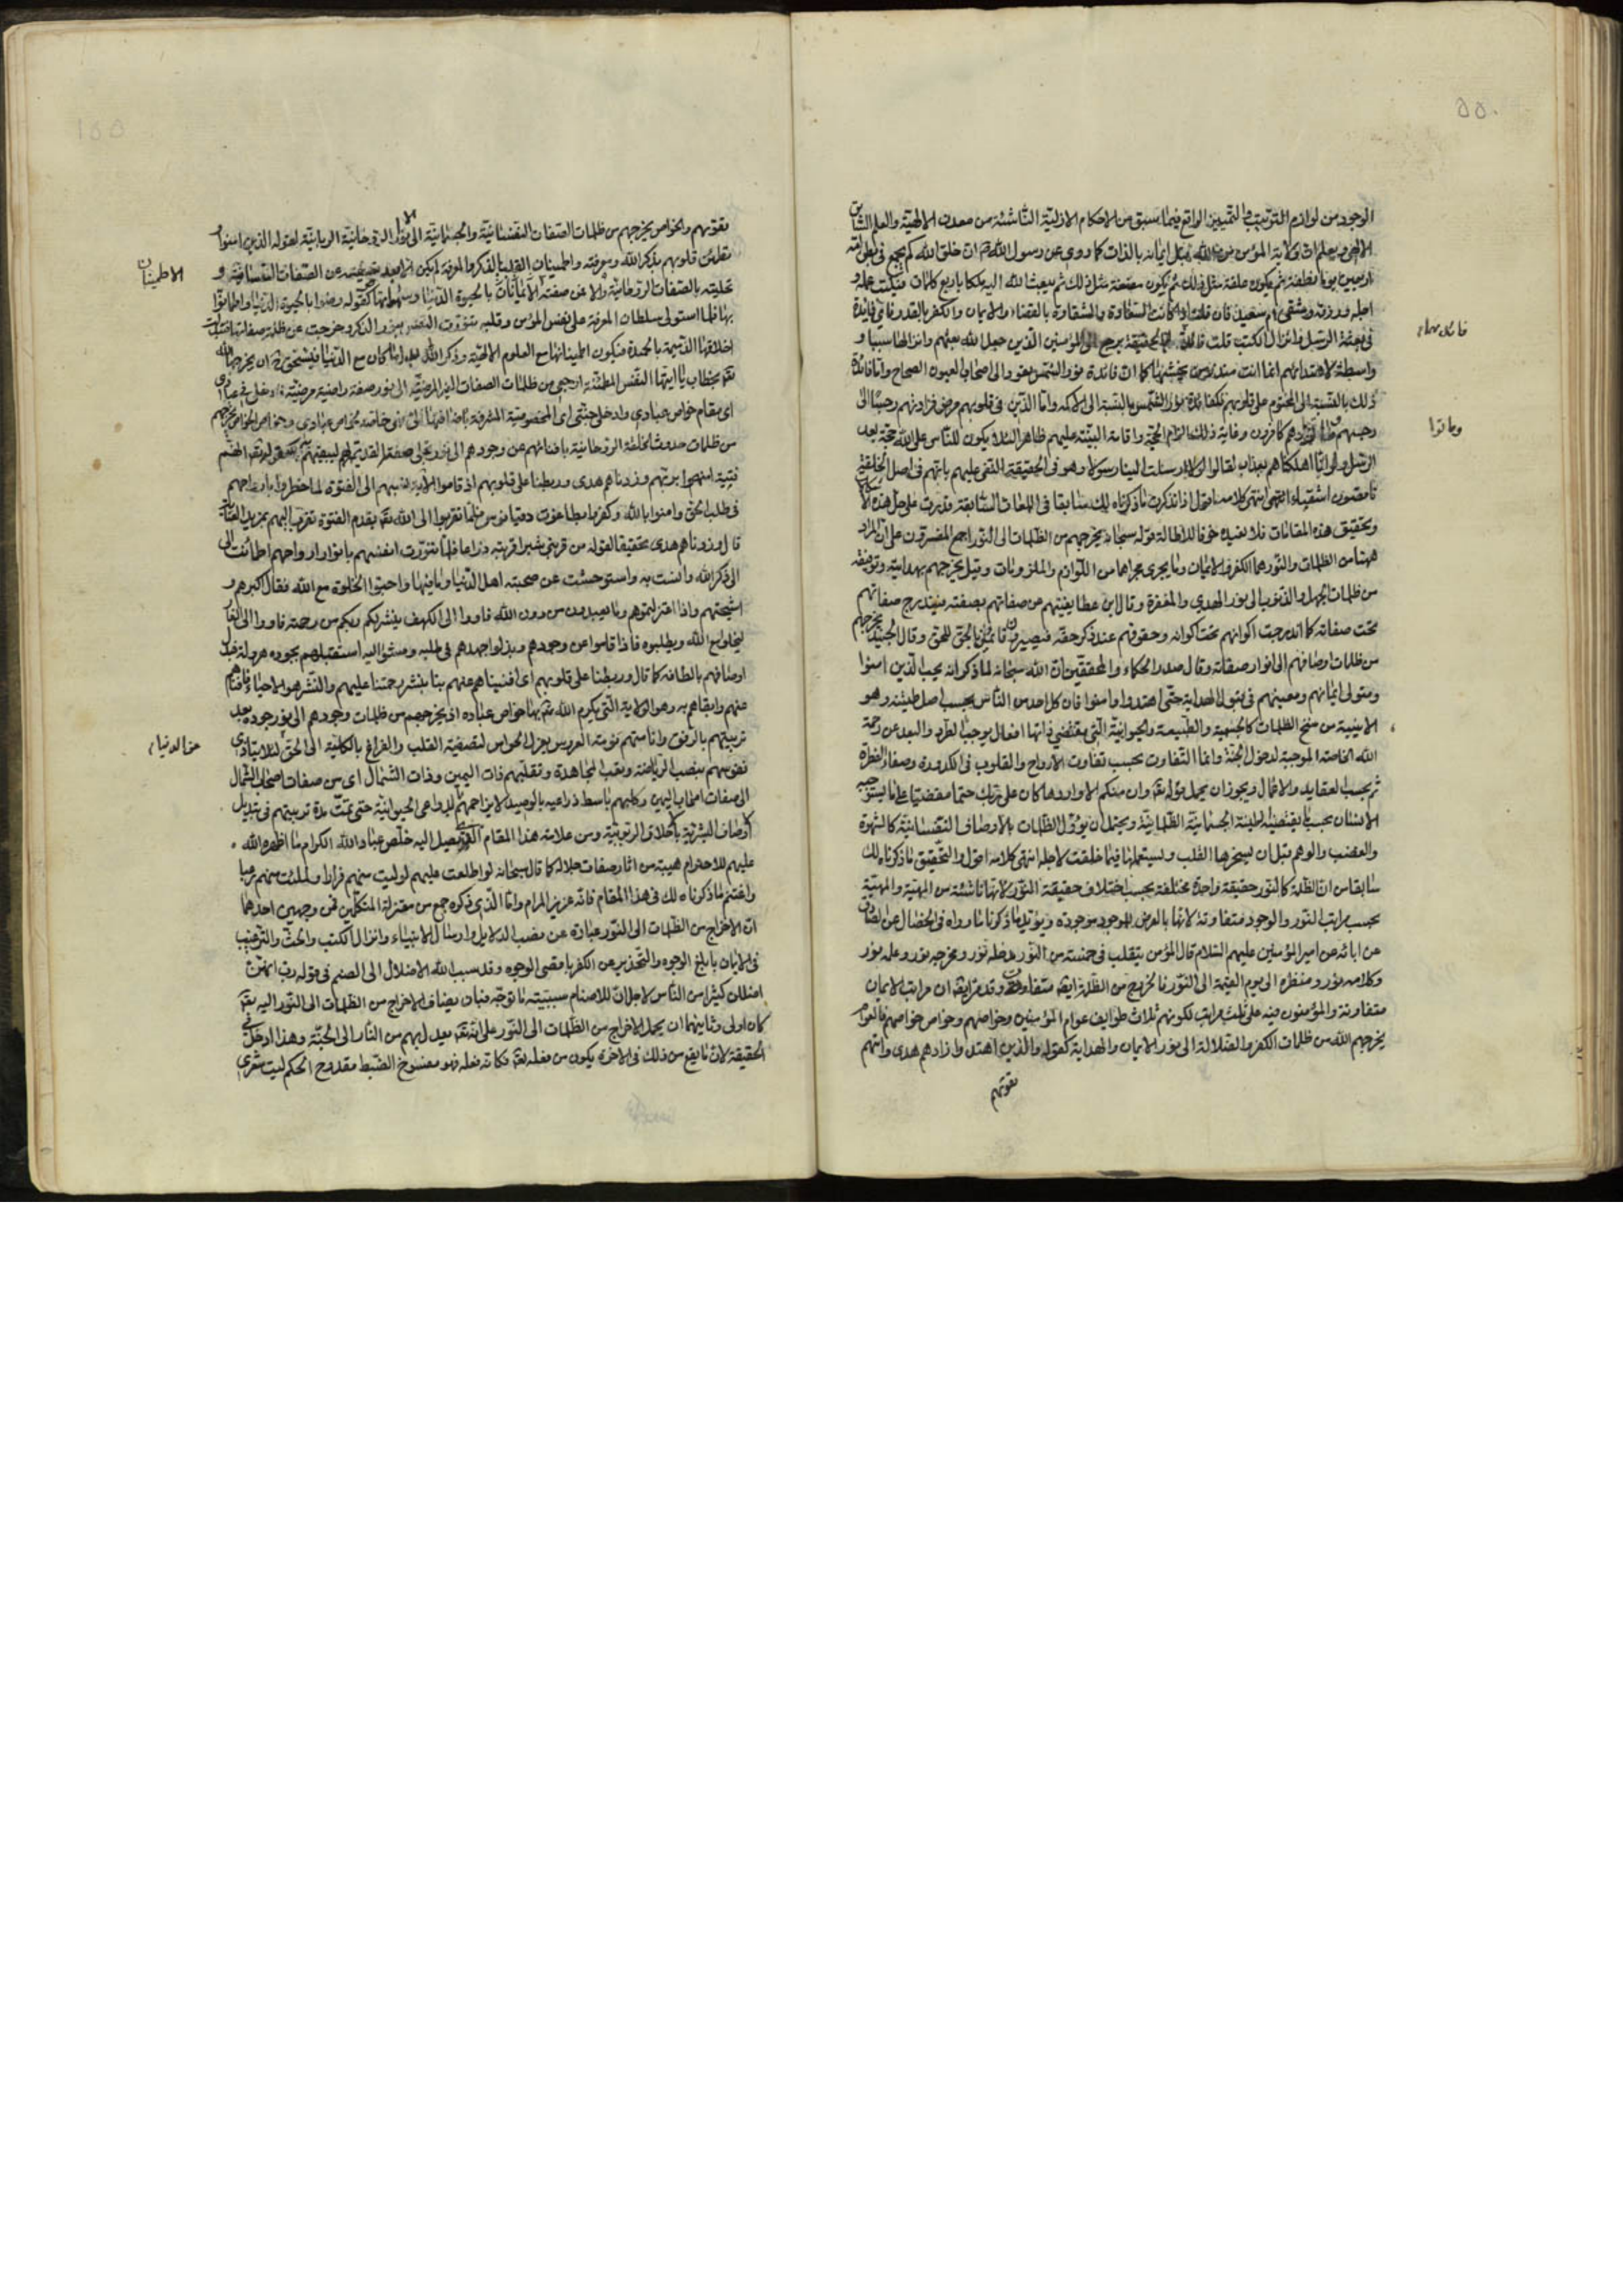 الوجود من لوازم الترتيب والتمييز الواقع فيما سبق من الاحكام الازلية الناشئة من معدن الالهية والعلم السابق
الالهى ويعلم ان ولاية المؤمن من الله قبل ايمانه بالذات كما روى عن رسول الله ان خلق الله كم يجمع فى بطن امه
اربعين يوما نطفة ثم يكون علقة مثل ذلك ثم يكون مضغة مثل ذلك ثم يبعث الله اليه ملكا باربع كلمات فيكتب عمله و
اجله ورزقه وشقى ام سعيد فان قلت اذا كانت السعادة والشقاوة بالقضاء والايمان والكفر بالقدر فاى فايدة
فى بعثة الرسل وانزال الكتب قلت فائدة الحقيقة يرجع الى المؤمنين الذين جعل الله بعثهم وانزالها سببا و
واسطة لاهتدائهم انما انت منذر من يخشيها كما ان فائدة نور الشمس يعود الى اصحاب العيون الصحاح واما فائدة
ذلك بالنسبة الى المختوم على قلوبهم فكفائدة نور الشمس بالنسبة الى الاكمه واما الذين فى قلوبهم مرض فزادتهم رجسا الى
رجسهم وماتوا وهم كافرون وغاية ذلك الزام الحجة واقامة البينة عليهم ظاهرا لئلا يكون للناس على الله حجة بعد
الرسل ولو انا اهلكناهم بعذاب لقالوا لولا ارسلت الينا رسولا وهو فى الحقيقة النعى عليهم بانهم فى اصل الخلقة
ناقصون اشقياء انتهى كلامه اقول اذا تذكرت ما ذكرناه لك سابقا فى اللمعات السابقة قدرت على حل هذه
وتحقيق هذه المقامات فلا نعيده خوفا للاطالة قوله سبحانه يخرجهم من الظلمات الى النور اجمع المفسرون على ان المراد
ههنا من الظلمات والنور هما الكفر والايمان وما يجرى مجراهما من اللوازم والملزومات وقيل يخرجهم بهدايته وتوفيقه
من ظلمات الجهل والذنوب الى نور الهدى والمغفرة وقال ابن عطا يغنيهم عن صفاتهم بصفته فيندرج صفاتهم
تحت صفاته كما اندرجت اكوانهم تحت كوانه وحقوقهم عند ذكر حقه فيصيرون قائمين بالحق للحق وقال الجنيد يخرجهم
من ظلمات اوصافهم الى انوار صفاته وقال صدر الحكماء والمحققين ان الله سبحانه لما ذكر انه يحب الذين امنوا
ومتولى ايمانهم ومعينهم فى قبول الهداية حتى اهتدوا وامنوا فان كل احد من الناس بحسب اصل طينته وهو
الابينية من سنخ الظلمات كالجسمية والطبيعة والحيوانية التى يقتضى ذاتها افعال يوجب الطرد والبعد عن رحمة
الله الخاصة الموجبة لدخول الجنة وانما التفاوت بحسب تفاوت الارواح والقلوب فى الكدورة وصفاء الفطرة
ثم بحسب العقايد والاعمال ويجوز ان يحمل قوله تعالى وان منكم الا واردها كان على ربك حتما مقضيا على ما يستوجبه
الانسان بحسب ما يقتضيه طينة الجسمانية الظلمانية ويحتمل ان يؤول الظلمات بالاوصاف النفسانية كالشهوة
والغضب والوهم قبل ان يسخرها القلب ويستعملها فيما خلقت لاجله انتهى كلامه اقول والتحقيق ما ذكرناه لك
سابقا من ان الظلمة كالنور حقيقة واحدة مختلفة بحسب اختلاف حقيقة النور لانها ناشئة من المهية والمهية
بحسب مراتب النور والوجود متفاوتة لانها بالعرض للوجود موجودة ويؤيد ما ذكرنا ما رواه فى الخصال عن الصادق
عن ابائه عن امير المؤمنين عليهم السلام قال المؤمن يتقلب فى خمسة من النور مدخله نور ومخرجه نور وعلمه نور
وكلامه نور ومنظره الى يوم القيمة الى النور فالخروج من الظلمة ايضا متفاوت وقد مر ايضا ان مراتب الايمان
متفاوتة والمؤمنون فيه على ثلث مراتب لكونهم ثلاث طوايف عوام المؤمنين وخواصهم وخواص خواصهم فالعوام
يخرجهم الله من ظلمات الكفر والضلالة الى نور الايمان والهداية كقوله والذين اهتدوا زادهم هدى واتيهم
تقويهم
فائدتها
وماتوا
تقويهم والخواص يخرجهم من ظلمات الصفات النفسانية والجسمانية الى نور الروحانية الربانية لقوله الذين امنوا
تطمئن قلوبهم بذكر الله ومعرفته واطمينان القلب بالذكر والمعرفة لم يكن الا بعد تصفيته عن الصفات النفسانية و
تحليته بالصفات الروحانية والا عن صفته الاطمينان بالحيوة الدنيا وشهواتها كقوله ورضوا بالحيوة الدنيا واطمانوا
بها فلما استولى سلطان المعرفة على نفس المؤمن وقلبه تنورت النفس بنور الذكر وخرجت عن ظلمة صفاتها فتبدلت
اخلاقها الذميمة بالحميدة فيكون اطمينانها مع العلوم الالهية وذكر الله بعد ما كان مع الدنيا فيستحق ان يخرجها الله
تعالى بخطاب يا ايتها النفس المطمئنة ارجعى من ظلمات الصفات الغير المرضية الى نور صفة راضية مرضية فادخلى فى عبادى
اى مقام خواص عبادى وادخلى جنتى اى المخصوصة المشرفة باضافتها الى نفسى خاصة لخواص عبادى وخواص الخواص يخرجهم
من ظلمات حدوث الخلقة الروحانية بافنائهم عن وجودهم الى نور تجلى صفة القديم لهم ليبقيهم به كقوله تعالى انهم
فتية امنوا بربهم وزدناهم هدى وربطنا على قلوبهم اذ قاموا الاية نسبهم الى الفتوة لما خاطروا بارواحهم
فى طلب الحق وامنوا بالله وكفروا بطاغوت دقيانوس فلما تقربوا الى الله تعالى بقدم الفتوة تقرب اليهم بمزيد العناية
قال وزدناهم هدى تحقيقا لقوله من قربنى شبرا قربته ذراعا فلما تنورت انفسهم بانوار ارواحهم اطمانت الى
الى ذكر الله وانست به واستوحشت عن صحبته اهل الدنيا وما فيها واحبوا الخلوة مع الله فقال اكبرهم و
اشيختهم واذا اعتزلتموهم وما يعبدون من دون الله فاووا الى الكهف ينشر لكم ربكم من رحمته فاووا الى الغار
ليخلو مع الله ويطلبوه فاذا قاموا عن وجودهم وبذلوا جهدهم فى طلبه ومشوا اليه استقبلهم بجوده هرولة فبدل
اوصافهم بالطافه كما قال وربطنا على قلوبهم اى افنيناهم عنهم بنا بنشر رحمتنا عليهم والنشر هو الاحياء فافناهم
عنهم وابقاهم به وهو الولاية التى يكرم الله تعالى بها خواص عباده اذ يخرجهم من ظلمات وجودهم الى نور جوده بعد
تربيتهم بالرفق وانامتهم نومة العروس بعزل الحواس لتصفية القلب والفراغ بالكلية الى الحق لئلا يتاذى
نفوسهم بنصب الرياضة وتعب المجاهدة وتقلبهم ذات اليمين وذات الشمال اى من صفات اصحاب الشمال
الى صفات اصحاب اليمين وكلبهم باسط ذراعيه بالوصيد لا يزاحمهم بالدواعى الحيوانية حتى تمت مدة تربيتهم فى تبديل
اوصاف البشرية باخلاق الربوبية ومن علامة هذا المقام الذى يصيل اليه خلص عباد الله الكرام ما اظهره الله
عليهم للاحترام هيبة من اثار صفات جلاله كما قال سبحانه لو اطلعت عليهم لوليت منهم فرارا ولملئت منهم رعبا
واغتنم ما ذكرناه لك فى هذا المقام فانه عزيز المرام واما الذى ذكره جمع من معتزلة المتكلمين فمن وجهين احدهما
ان الاخراج من الظلمات الى النور عبارة عن نصب الدلايل وارسال الانبياء وانزال الكتب والحث والترغيب
فى الايمان بابلغ الوجوه والتحذير من الكفر باقصى الوجوه وقد سبب الله الاضلال الى الصنم فى قوله رب انهن
اضللن كثيرا من الناس لاجل ان للاصنام سببية ما توجه فبان يضاف الاخراج من الظلمات الى النور اليه تعالى
كان اولى وثانيهما ان يحمل الاخراج من الظلمات الى النور على انه تعالى يعدل بهم من النار الى الجنة وهذا ادخل فى
الحقيقة لان ما يقع من ذلك فى الاخرة يكون من فعله تعالى فكانه فعله فهو مفسوخ الضبط مقدوح الحكم ليت شعرى
الاطمينان
عن الدنيا